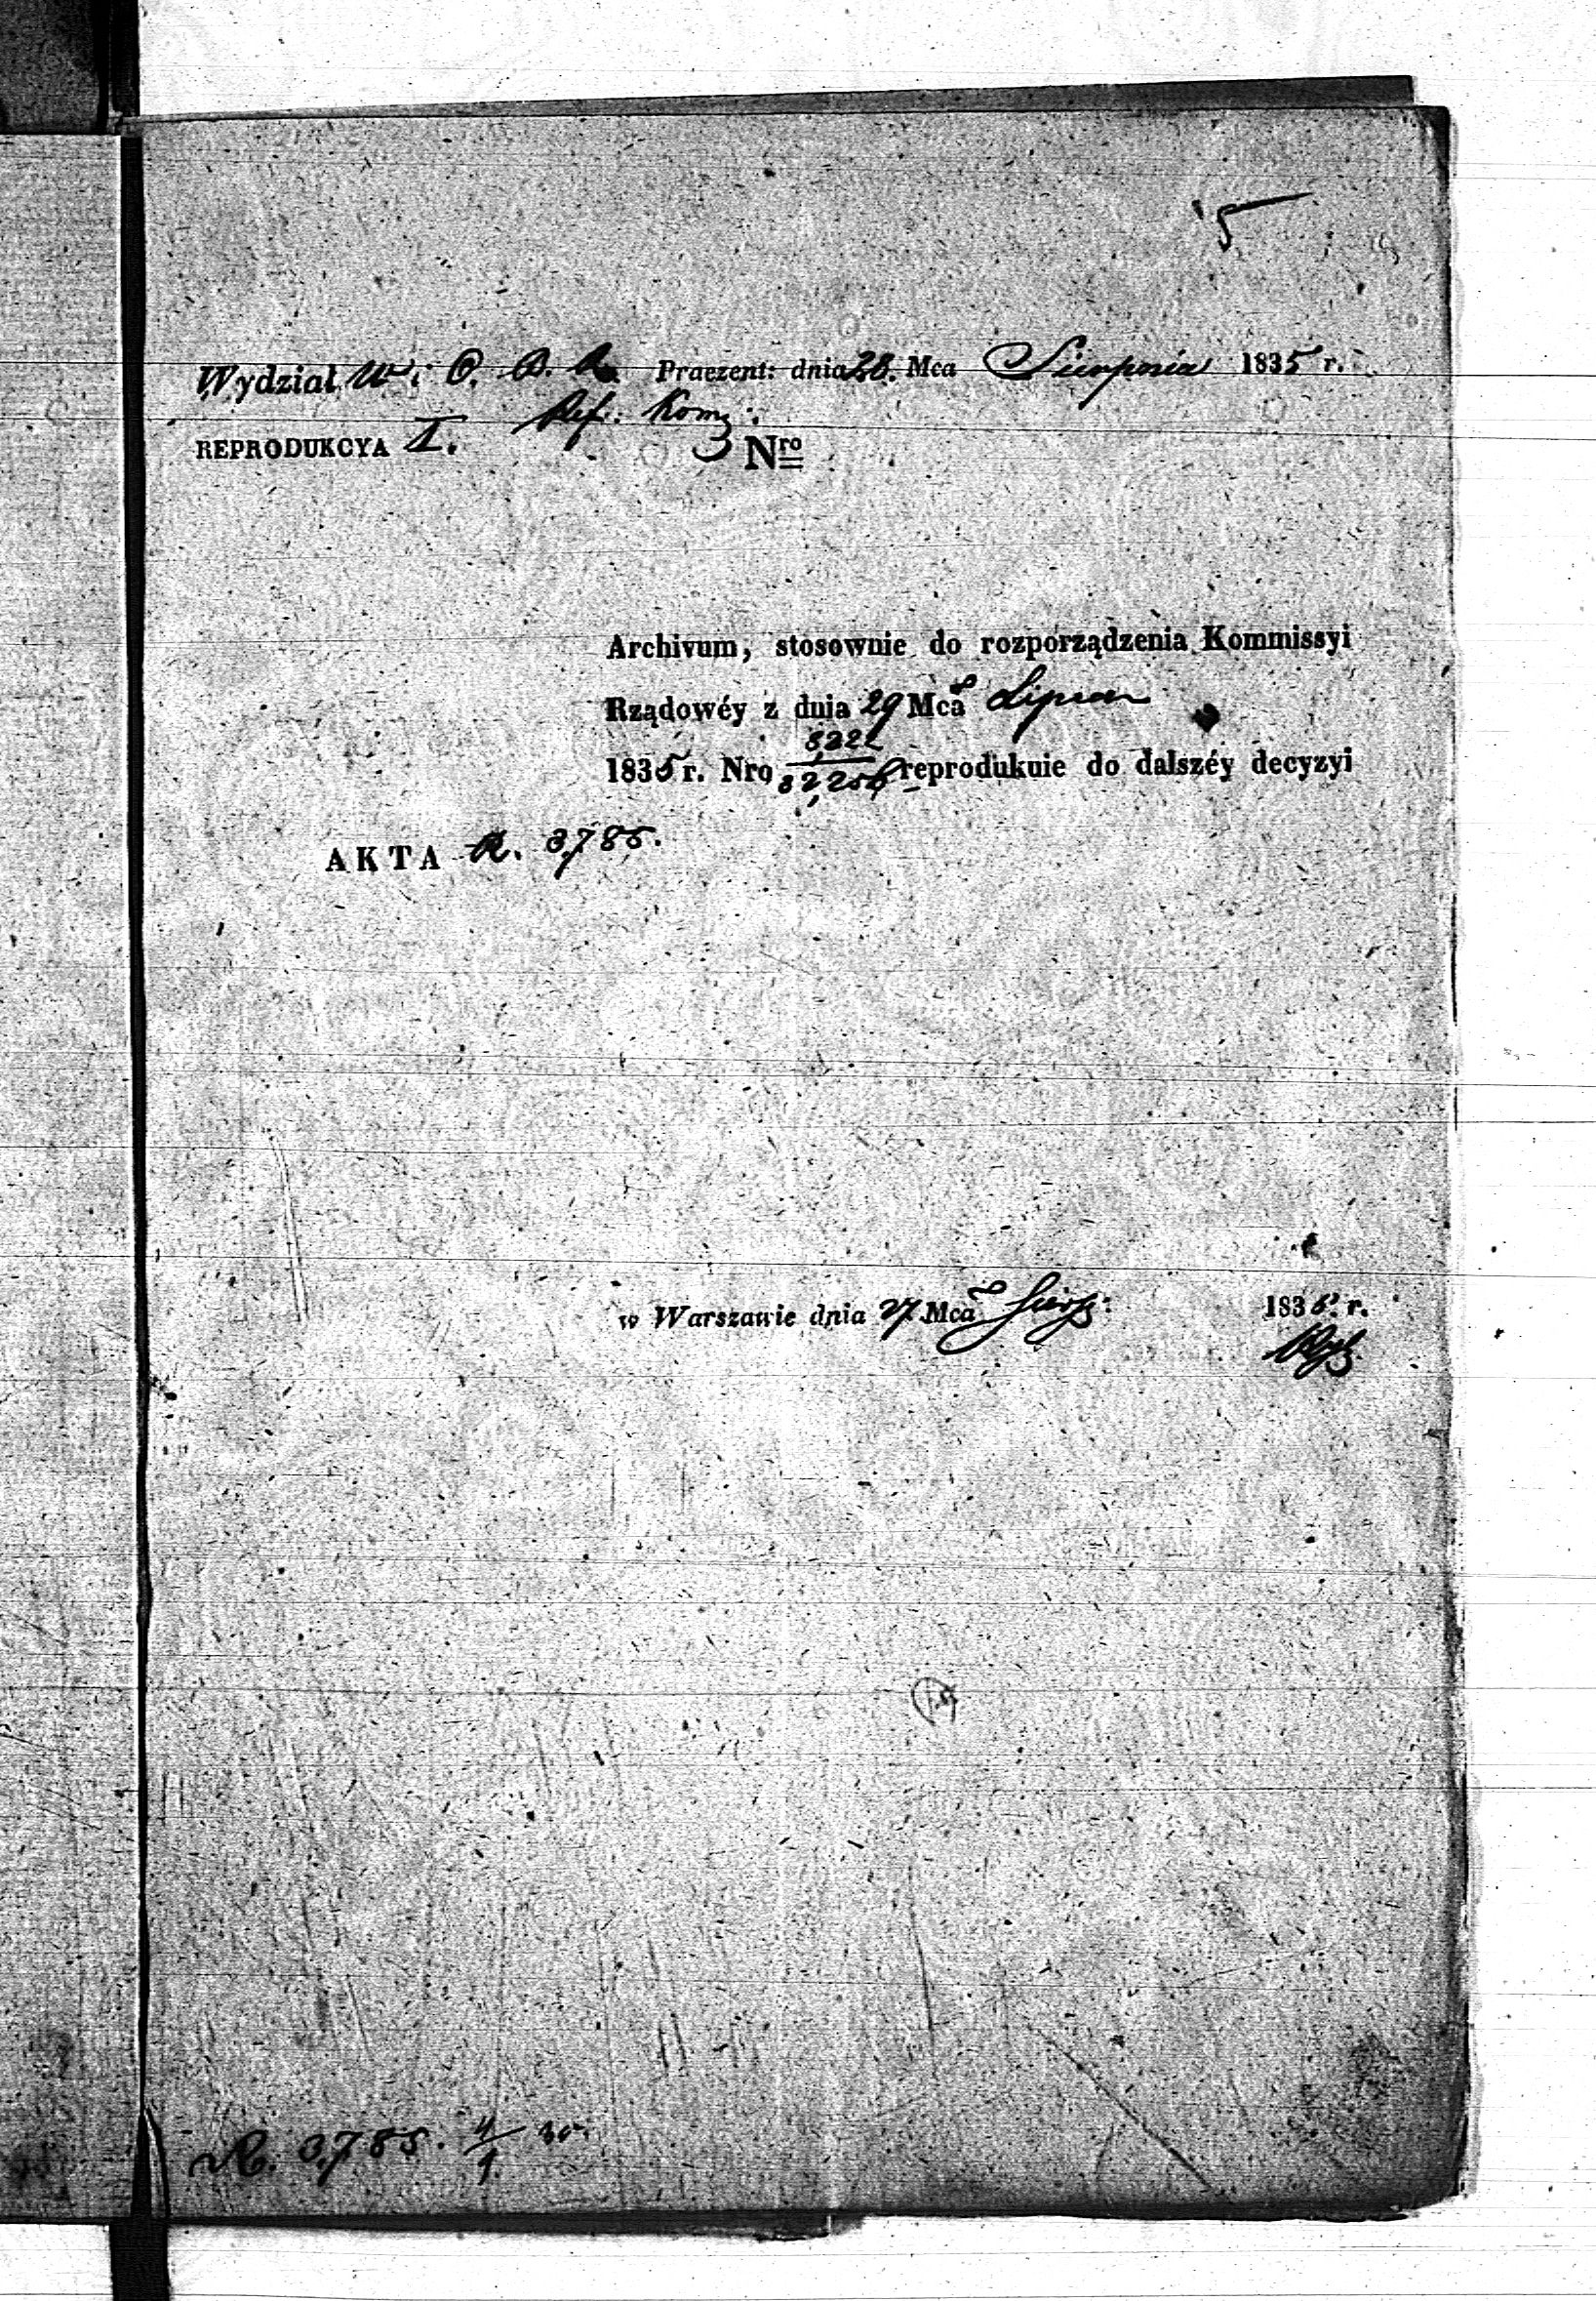 5
Wydział W. i O. P. Praezent: dnia 28. Mca Sierpnia 1835 r.
Ref: Kom:
REPRODUKCYA I. Nro
Archivum, stosownie do rozporządzenia Kommissyi
Rządowéy z dnia 29 Mca Lipca
1835 r. Nro reprodukuie do dalszéy decyzyi
AKTA R. 3,785.
w Warszawie dnia 27 Mca Sierp: 1835. r.
R. 3,785. 4/1 35.